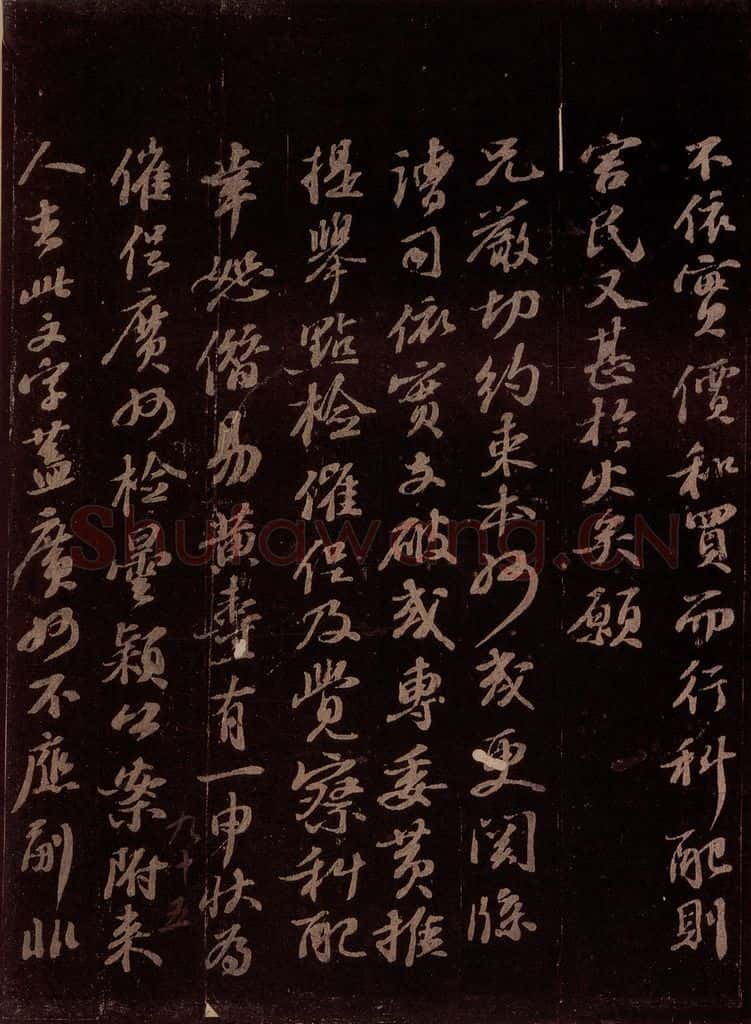 不依實價和買而行科配則
害民又甚於火矣願
兄嚴切約束本州或更関牒
漕司依實支破或專委黄推
提舉點檢催促及覺察科配
幸恕僭易黄燾有一申狀爲
催促廣州檢曇颖公案附来
人去此文字蓋廣州不應副非
九十五
Shufawang.CN